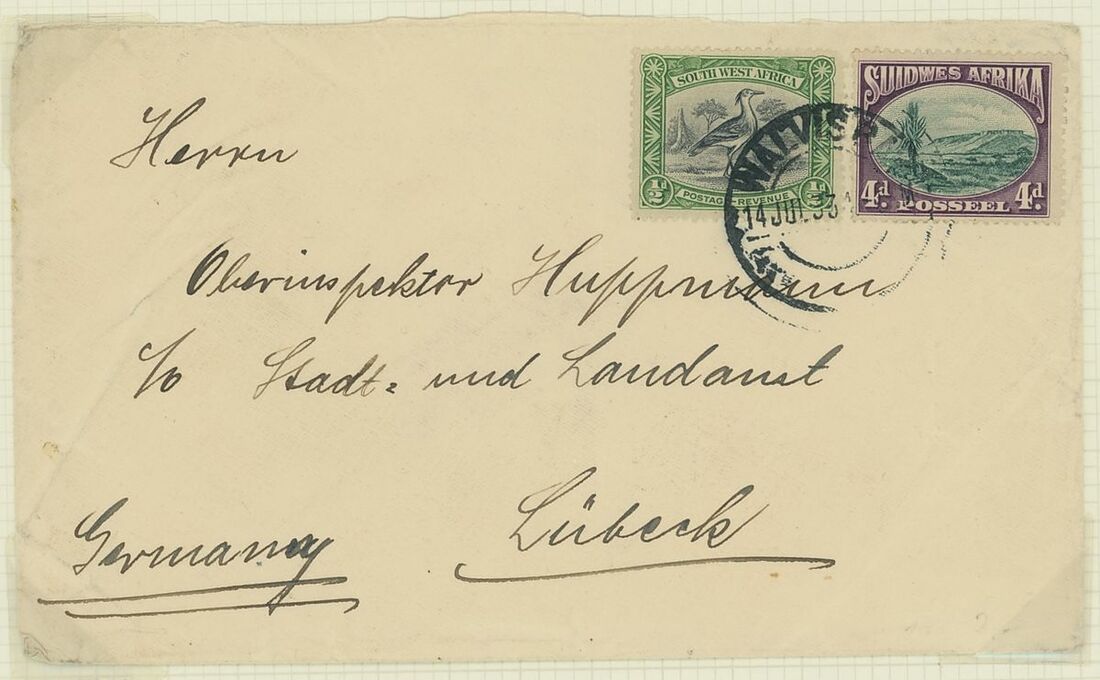 SOUTH WEST AFRICA
½d ½d
POSTAGE REVENUE
SUIDWES AFRIKA
4d. 4d.
POSSEEL
WALVIS
14 JUL 33
Herrn
Oberinspektor Huppmann
c/o Stadt= und Landamt
Lübeck
Germany